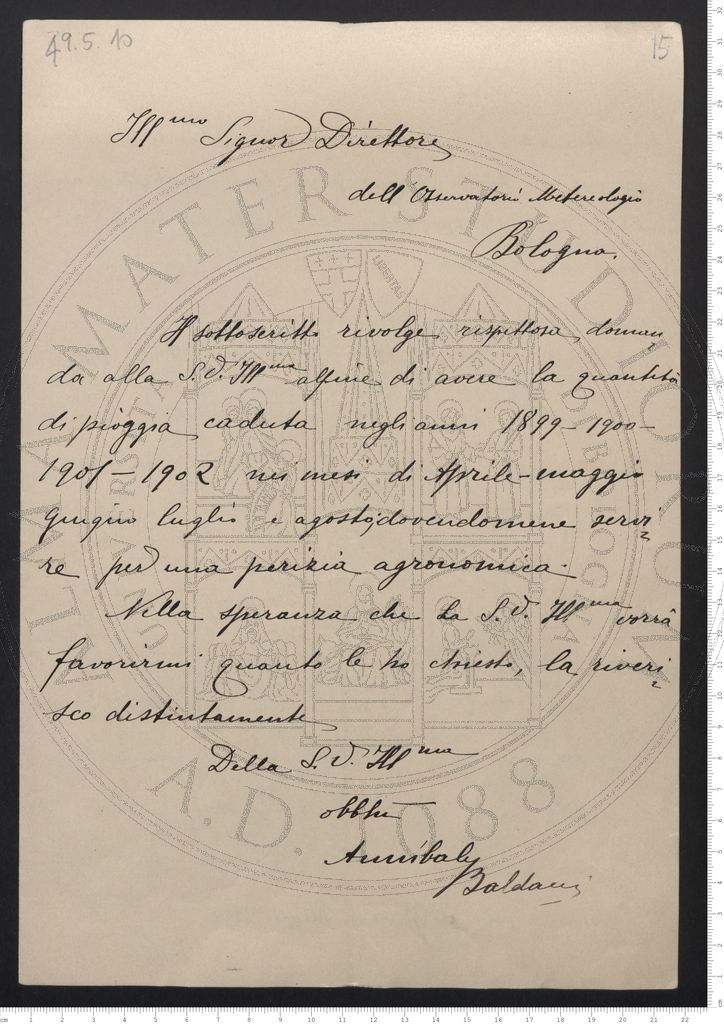 49.5.10
15
Ill.mo Signor Direttore
dell'Osservatorio Metereologio
Bologna.
Il sottoscritto rivolge rispettosa doman
da alla S.V. Ill.ma alfine di avere la quantità
di pioggia caduta negli anni 1899-1900-
1901-1902 nei mesi di Aprile-maggio
giugno luglio e agosto, dovendomene servi
re per una perizia agronomica.
Nella speranza che La S.V. Ill.ma vorrà
favorirmi quanto le ho chiesto, la riveri
sco distintamente
Della S.V. Ill.ma
Annibale
Baldani
ALMA MATER STUDIORUM
A.D. 1088
LIBERTAS